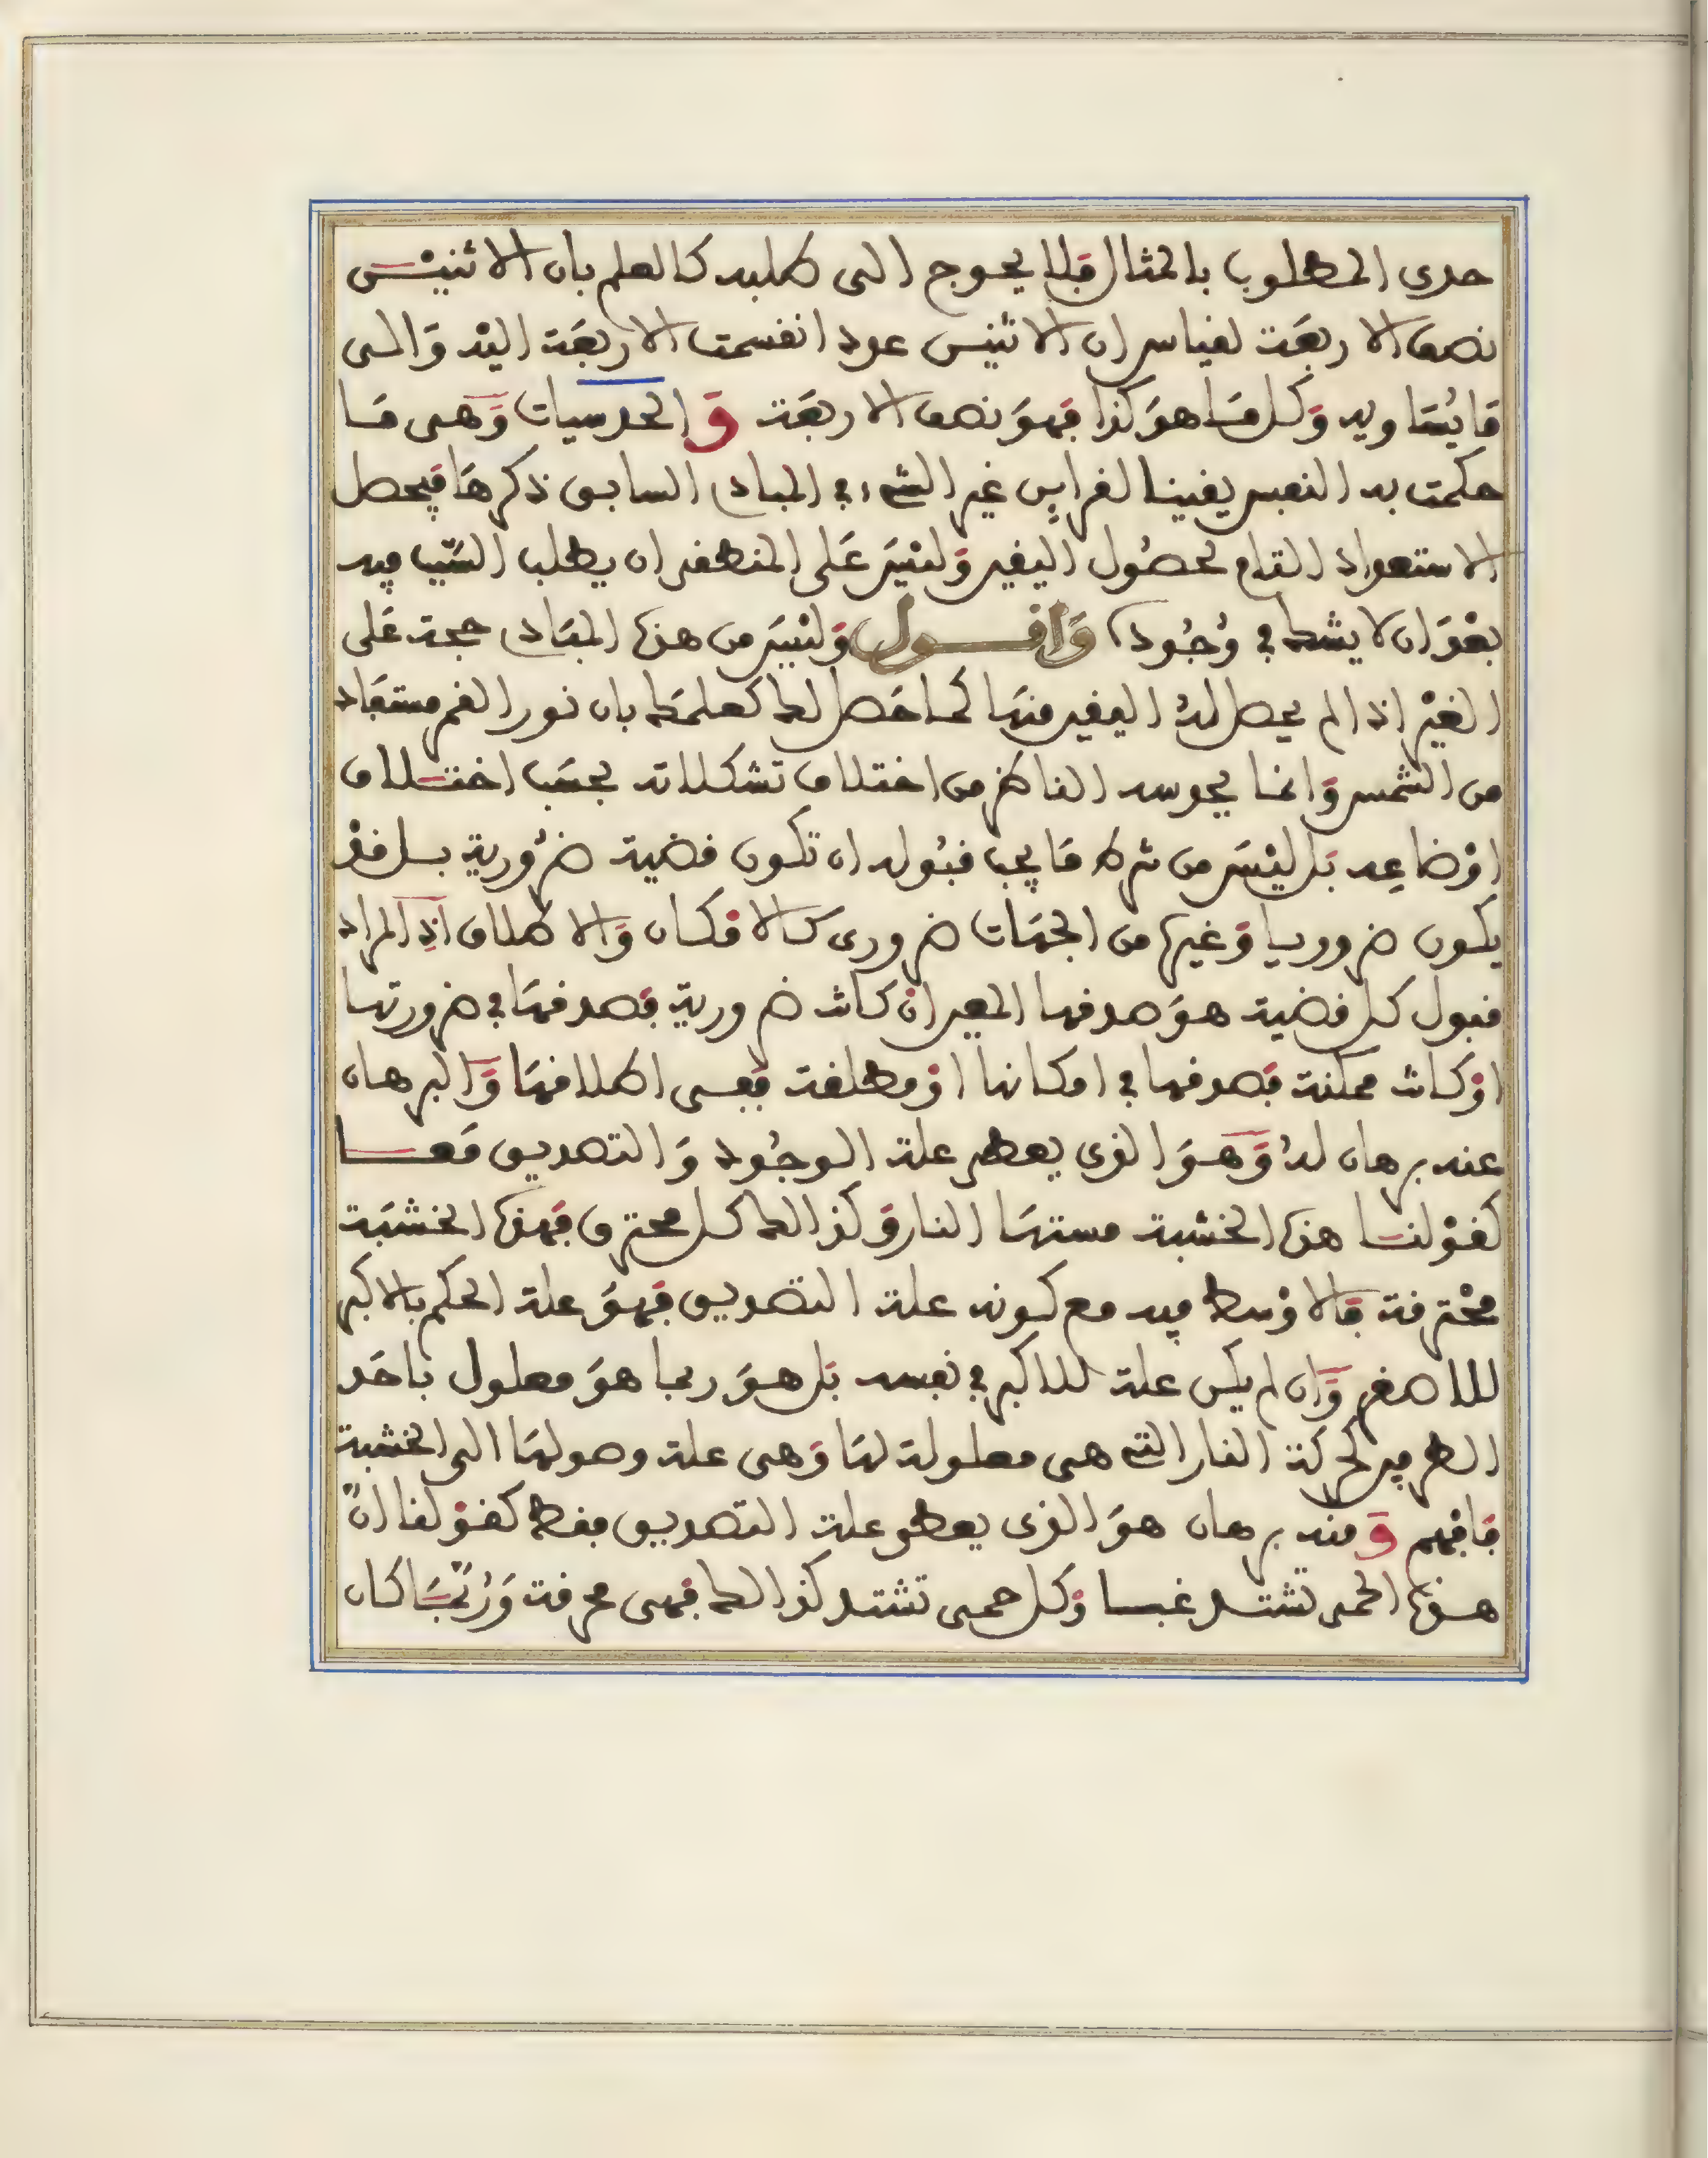 حدي المطلوب بالمثال فلا يحوج الى طلبه كالعلم بان الاثنيْن
نصف الاربعَة لقياس ان الاثنين عدد انقسمت الاربعَة اليْه وَالى
مَا يُسَاويه وَكل مَا هوَ كذا فهوَ نصف الاربعَة وَالحدسيات وَهى مَا
حكمت به النفس يقينا لقراين غير التى فى المبادى السابق ذكرهَا فيحصل
الاستعداد التام لحصُول اليقين وَليْسَ عَلى المنطقى ان يطلب السّبب فيه
بعْدَ ان لا يشك فى وُجُوده وَاقــول وَليْسَ من هذه المبَادى حجة عَلى
الغيْر اذا لم يحصل لهُ اليقين منهَا كمَا حَصل لك كعلمَك بان نور القمر مستفَاد
من الشمس وَانما يحدسه الناظر من اختلاف تشكلاته بحسَب اختــلاف
اوْضاعِه بَل ليْسَ من شرط مَا يجب قبُوله ان تكون قضية ضرُورية بــل قدْ
يكون ضروريا وَغيره من الجهَات ضرورى كالامْكان وَالاطلاق اذِ المراد
قبول كل قضية هوَ صدقها المعين ان كانت ضرورية فصدقهَا فى ضرورتها
اوْ كانت ممكنة فصدقها فى امكانها اوْ مطلقة ففى اطلاقهَا وَالبرهان
عنه برهان لمُ وَهوَ الذى يعطى علة الوجُود وَالتصديق مَعــا
كقوْلنــا هذه الخشبة مستهَا النار وَكذالك كل محترق فهَذه الخشبَة
محْترقة فالاوْسط فيه مع كونه علة التصديق فهوَ علة الحكم بالاكبر
للاصغر وَان لم يكن علة للاكبر فى نفسه بَل هوَ ربما هوَ معلول باحَد
الطرفين لحركة النار التى هى معلولة لهَا وَهى علة وصولهَا الى الخشبة
فافهم وَمنه برهان هوَ الذى يعطى علة التصديق فقط كقوْلنا انّ
هـذه الحمى تشتــد غبــا وَكل حمى تشتد كذالك فهى محرقة وَرُبّمَا كان